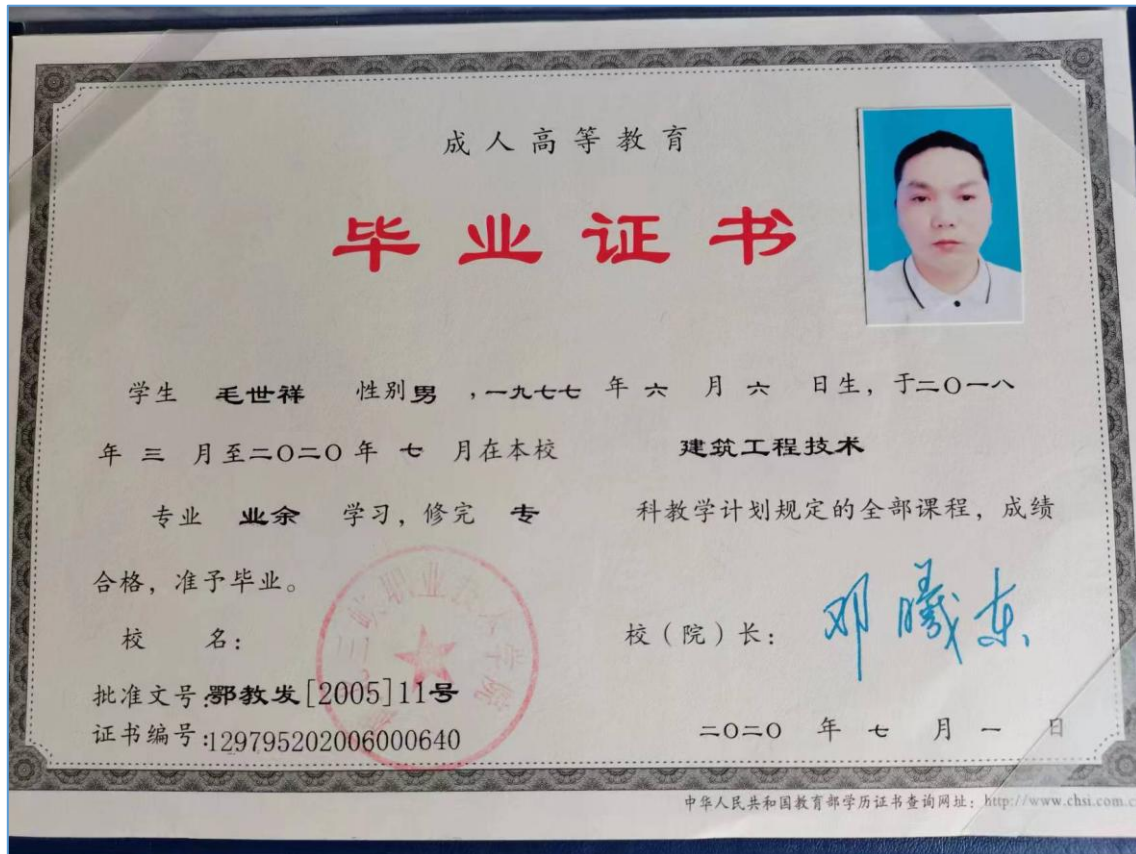 成人高等教育
毕业证书
学生 毛世祥 性别男 ,一九七七 年 六 月 六 日生，于二〇一八
年 三 月至二〇二〇年 七 月在本校 建筑工程技术
专业 业余 学习，修完 专 科教学计划规定的全部课程，成绩
合格，准予毕业。
校 名： 校（院）长： 邓曦东
三峡职业技术学院
批准文号:鄂教发[2005]11号
证书编号:129795202006000640 二〇二〇 年 七 月 一 日
中华人民共和国教育部学历证书查询网址：http://www.chsi.com.c